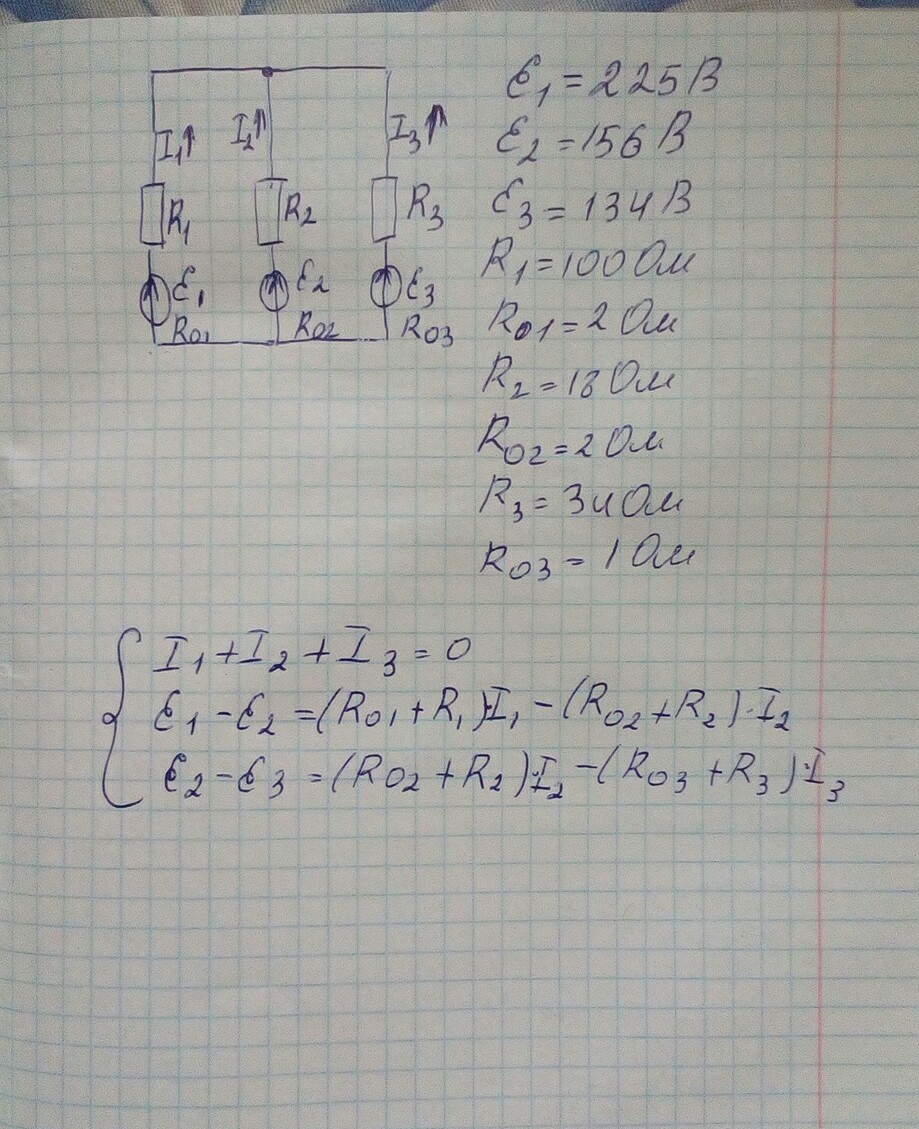 I₁↑ I₂↑ I₃↑
R₁ R₂ R₃
Ɛ₁ Ɛ₂ Ɛ₃
R₀₁ R₀₂ R₀₃
Ɛ₁ = 225 В
Ɛ₂ = 156 В
Ɛ₃ = 134 В
R₁ = 100 Ом
R₀₁ = 2 Ом
R₂ = 18 Ом
R₀₂ = 2 Ом
R₃ = 34 Ом
R₀₃ = 1 Ом
I₁ + I₂ + I₃ = 0
Ɛ₁ - Ɛ₂ = (R₀₁ + R₁)·I₁ - (R₀₂ + R₂)·I₂
Ɛ₂ - Ɛ₃ = (R₀₂ + R₂)·I₂ - (R₀₃ + R₃)·I₃